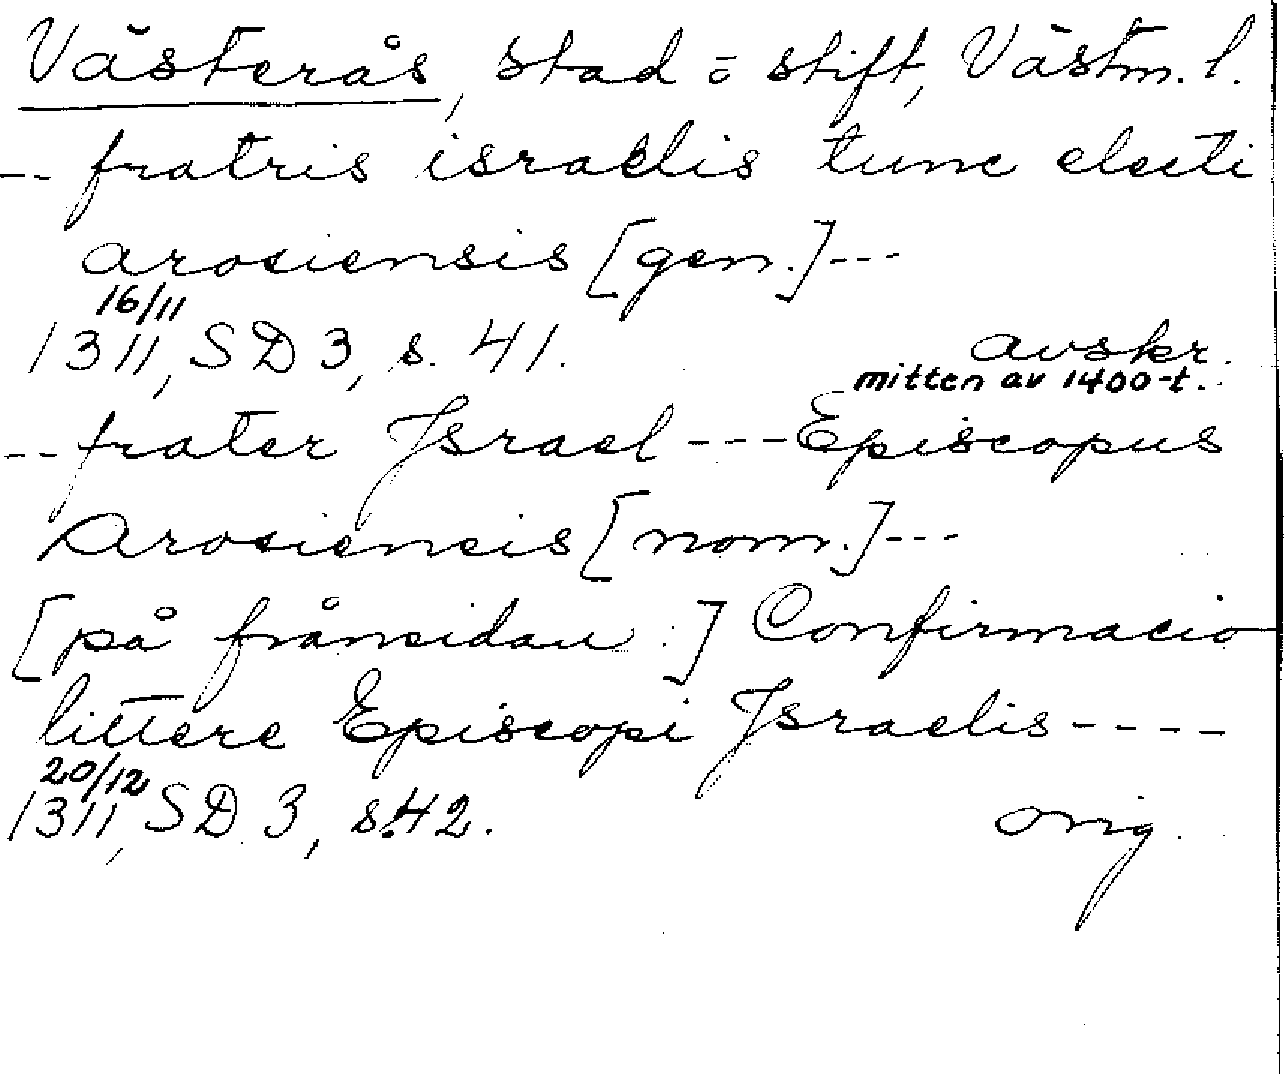 Västerås, stad o stift, Västm. l.
-- fratris israelis tunc electi
arosiensis [gen.] ---
16/11
1311, SD 3, s. 41. avskr.
mitten av 1400-t.
-- frater Israel --- Episcopus
Arosiencis [nom.] ---
[på frånsidan :] Confirmacio
littere Episcopi Israelis ----
20/12
1311, SD 3, s. 42. orig.